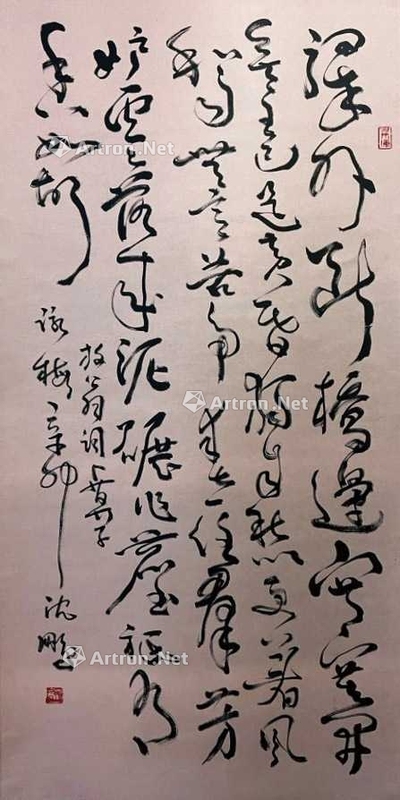 驛外斷橋邊寂寞開
無主已是黃昏獨自愁更著風
和雨無意苦爭春一任群芳
妒零落成泥碾作塵祗有
香如故
放翁詞卜算子
詠梅 辛卯 沈鵬
Artron.Net
Artron.Net
Artron.Net